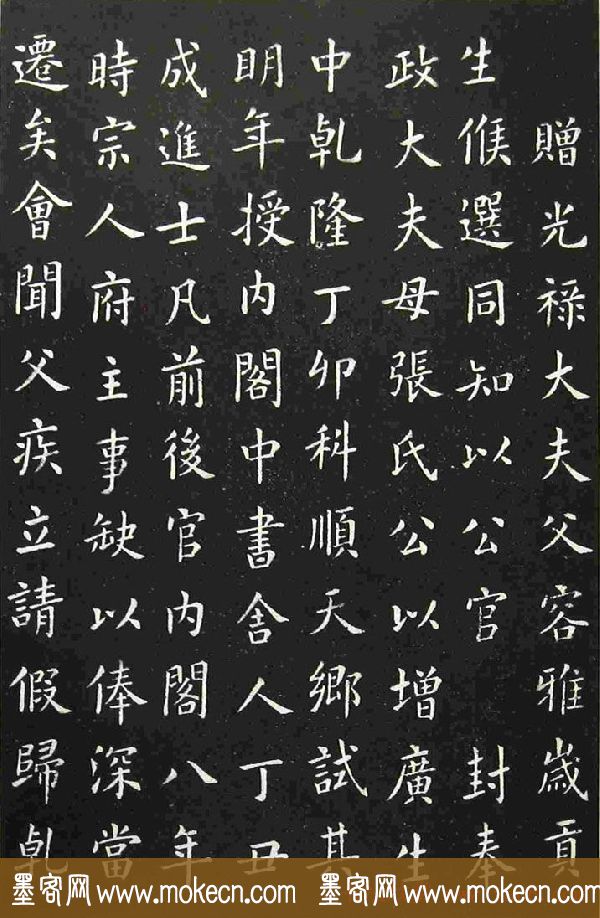 贈光祿大夫父容雅歲貢
生候選同知以公官封奉
政大夫母張氏公以增廣生
中乹隆丁卯科順天鄉試其
明年授内閣中書舍人丁丑
成進士凡前後官内閣八年
時宗人府主事缺以俸深當
遷矣會聞父疾立請假歸乹
墨客网 www.mokecn.com 墨客网 www.mokecn.com